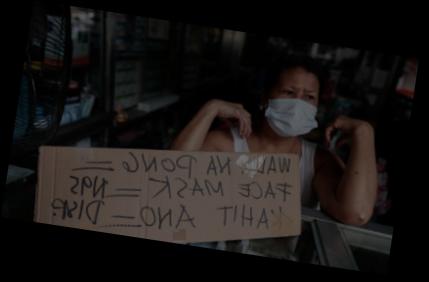 WALA NA PONG =
FACE MASK = N95
KAHIT ANO = DISP